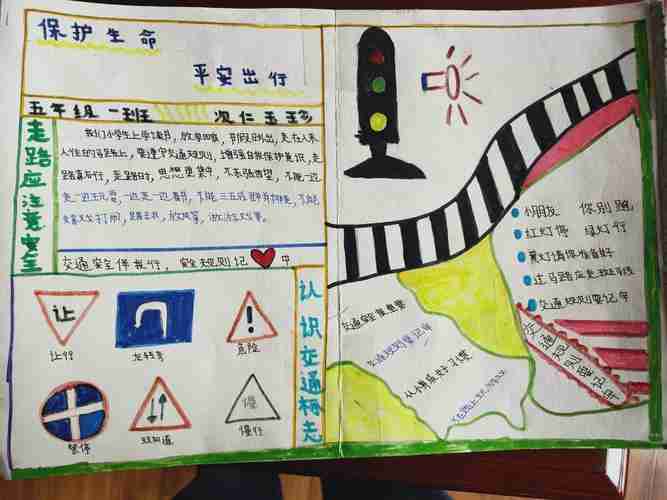 保护生命
平安出行
五年级一班 次仁玉珍
走路应注意安全
我们小学生上学读书,放学回家,节假日外出,走在人来
人往的马路上,要遵守交通规则,增强自我保护意识,走
路靠右行,走路时,思想要集中,不东张西望,不能一边
走一边玩耍,一边走一边看书,不能三五成群并排走,不能
交通安全伴我行,安全规则记 中
认识交通标志
让
让行
左转弯
危险
禁停
双向道
慢
慢行
小朋友 你别跑
红灯停 绿灯行
黄灯请你准备好
过马路应走斑马线
交通规则要记牢
交通规则要记牢
交通安全很重要
交通规则要记牢
从小养成好习惯